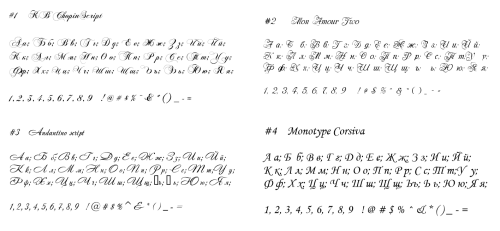 #1 K B Chopin Script
Аа; Бб; Вв; Гг; Дд; Ее; Жж; Зз; Ии; Йй;
Кк; Лл; Мм; Нн; Оо; Пп; Рр; Сс; Тт; Уу;
Фф; Хх; Цц; Чч; Шш; Щщ; Ъъ; Ьь; Юю; Яя;
1, 2, 3, 4, 5, 6, 7, 8, 9 ! @ # % ^ & * ( ) _ - =
#2 Mon Amour Two
Аа; Бб; Вв; Гг; Дд; Ее; Жж; Зз; Ии; Йй;
Кк; Лл; Мм; Нн; Оо; Пп; Рр; Сс; Тт; Уу;
Фф; Хх; Цц; Чч; Шш; Щщ; ъ; ь; Юю; Яя;
1, 2, 3, 4, 5, 6, 7, 8, 9 ! # $ % ^ & * ( ) _ - =
#3 Andantino script
Аа; Бб; Вв; Гг; Дд; Ее; Жж; Зз; Ии; Йй;
Кк; Лл; Мм; Нн; Оо; Пп; Рр; Сс; Тт; Уу;
Фф; Хх; Цц; Чч; Шш; Щщ; ъ; ь; Юю; Яя;
1, 2, 3, 4, 5, 6, 7, 8, 9 ! @ # $ % ^ & * ( ) _ - =
#4 Monotype Corsiva
Аа; Бб; Вв; Гг; Дд; Ее; Жж; Зз; Ии; Йй;
Кк; Лл; Мм; Нн; Оо; Пп; Рр; Сс; Тт; Уу;
Фф; Хх; Цц; Чч; Шш; Щщ; Ъъ; Ьь; Юю; Яя;
1, 2, 3, 4, 5, 6, 7, 8, 9 ! @ # $ % ^ & * ( ) _ - =